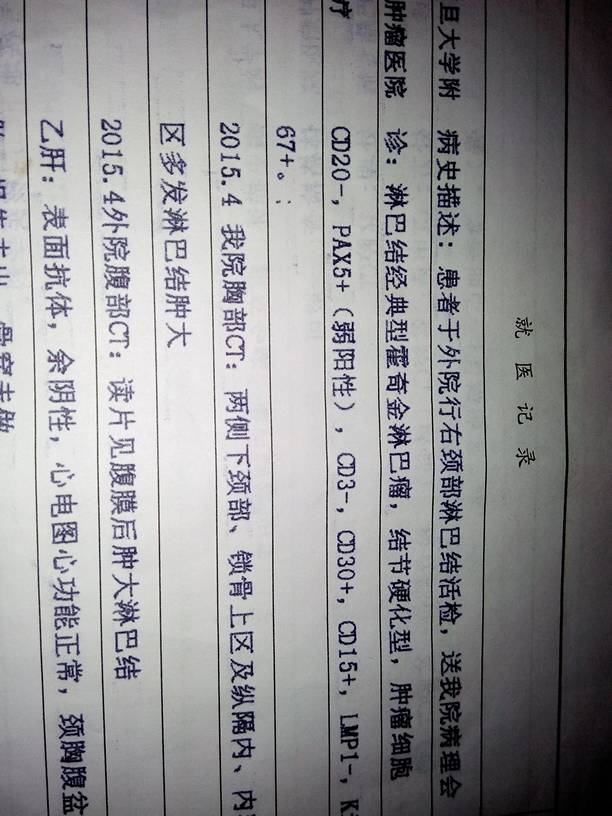 就医记录
旦大学附 病史描述：患者于外院行右颈部淋巴结活检，送我院病理会
肿瘤医院 诊：淋巴结经典型霍奇金淋巴瘤，结节硬化型，肿瘤细胞
疗 CD20-，PAX5+（弱阳性），CD3-，CD30+，CD15+，LMP1-，K
67+。；
2015.4 我院胸部CT：两侧下颈部、锁骨上区及纵隔内、内
区多发淋巴结肿大
2015.4外院腹部CT：读片见腹膜后肿大淋巴结
乙肝：表面抗体，余阴性，心电图心功能正常，颈胸腹盆